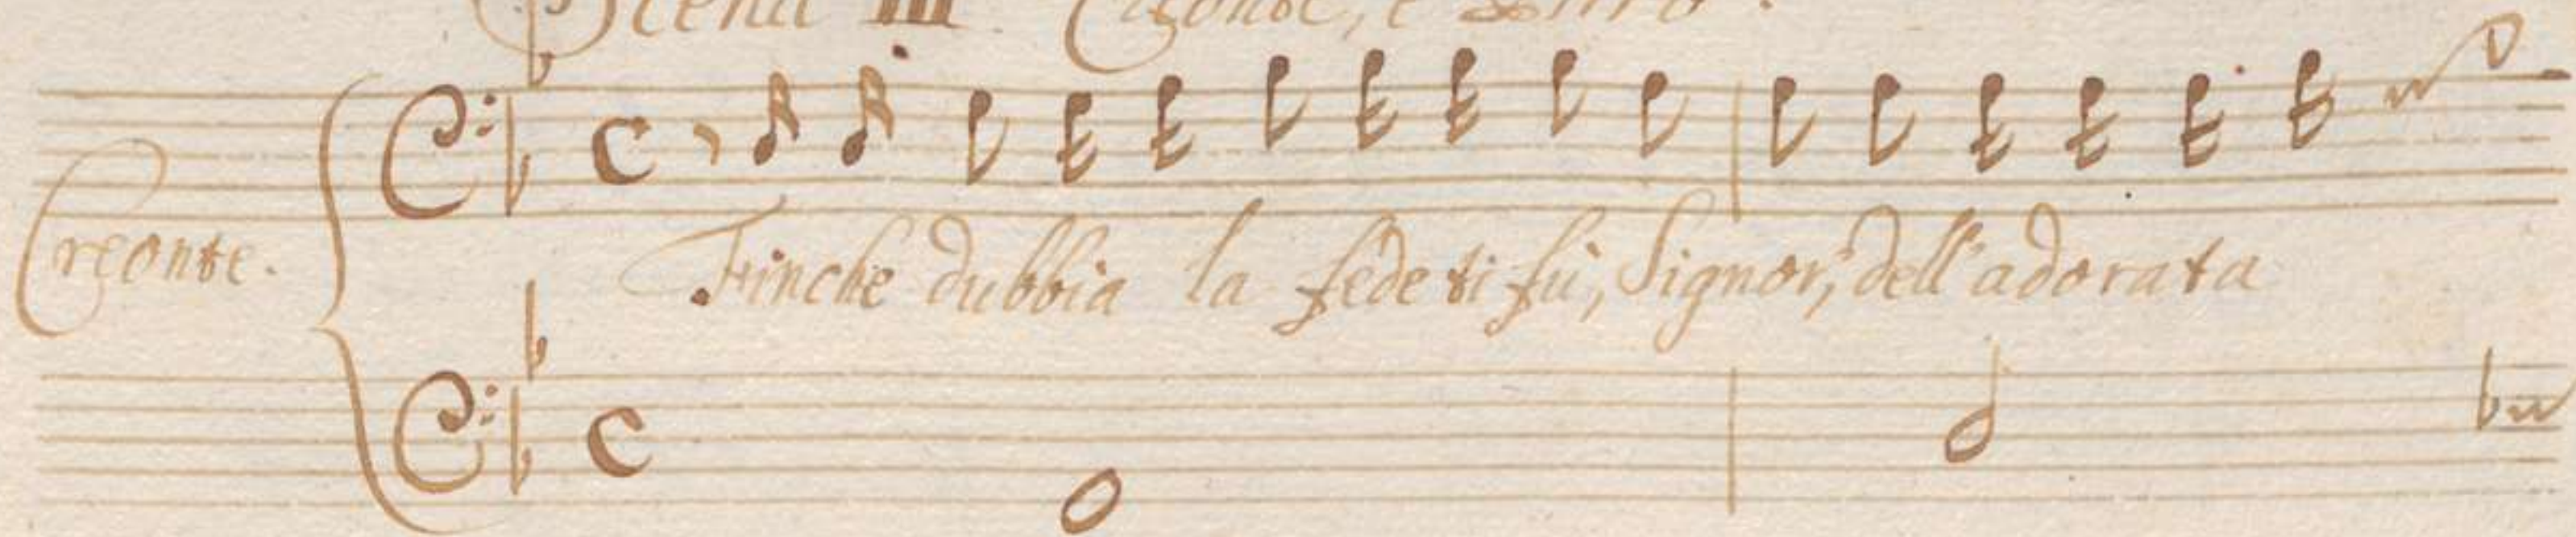 Scena III Creonte, e
Creonte.
Finche dubbia la fede ti fù, Signor, dell'adorata